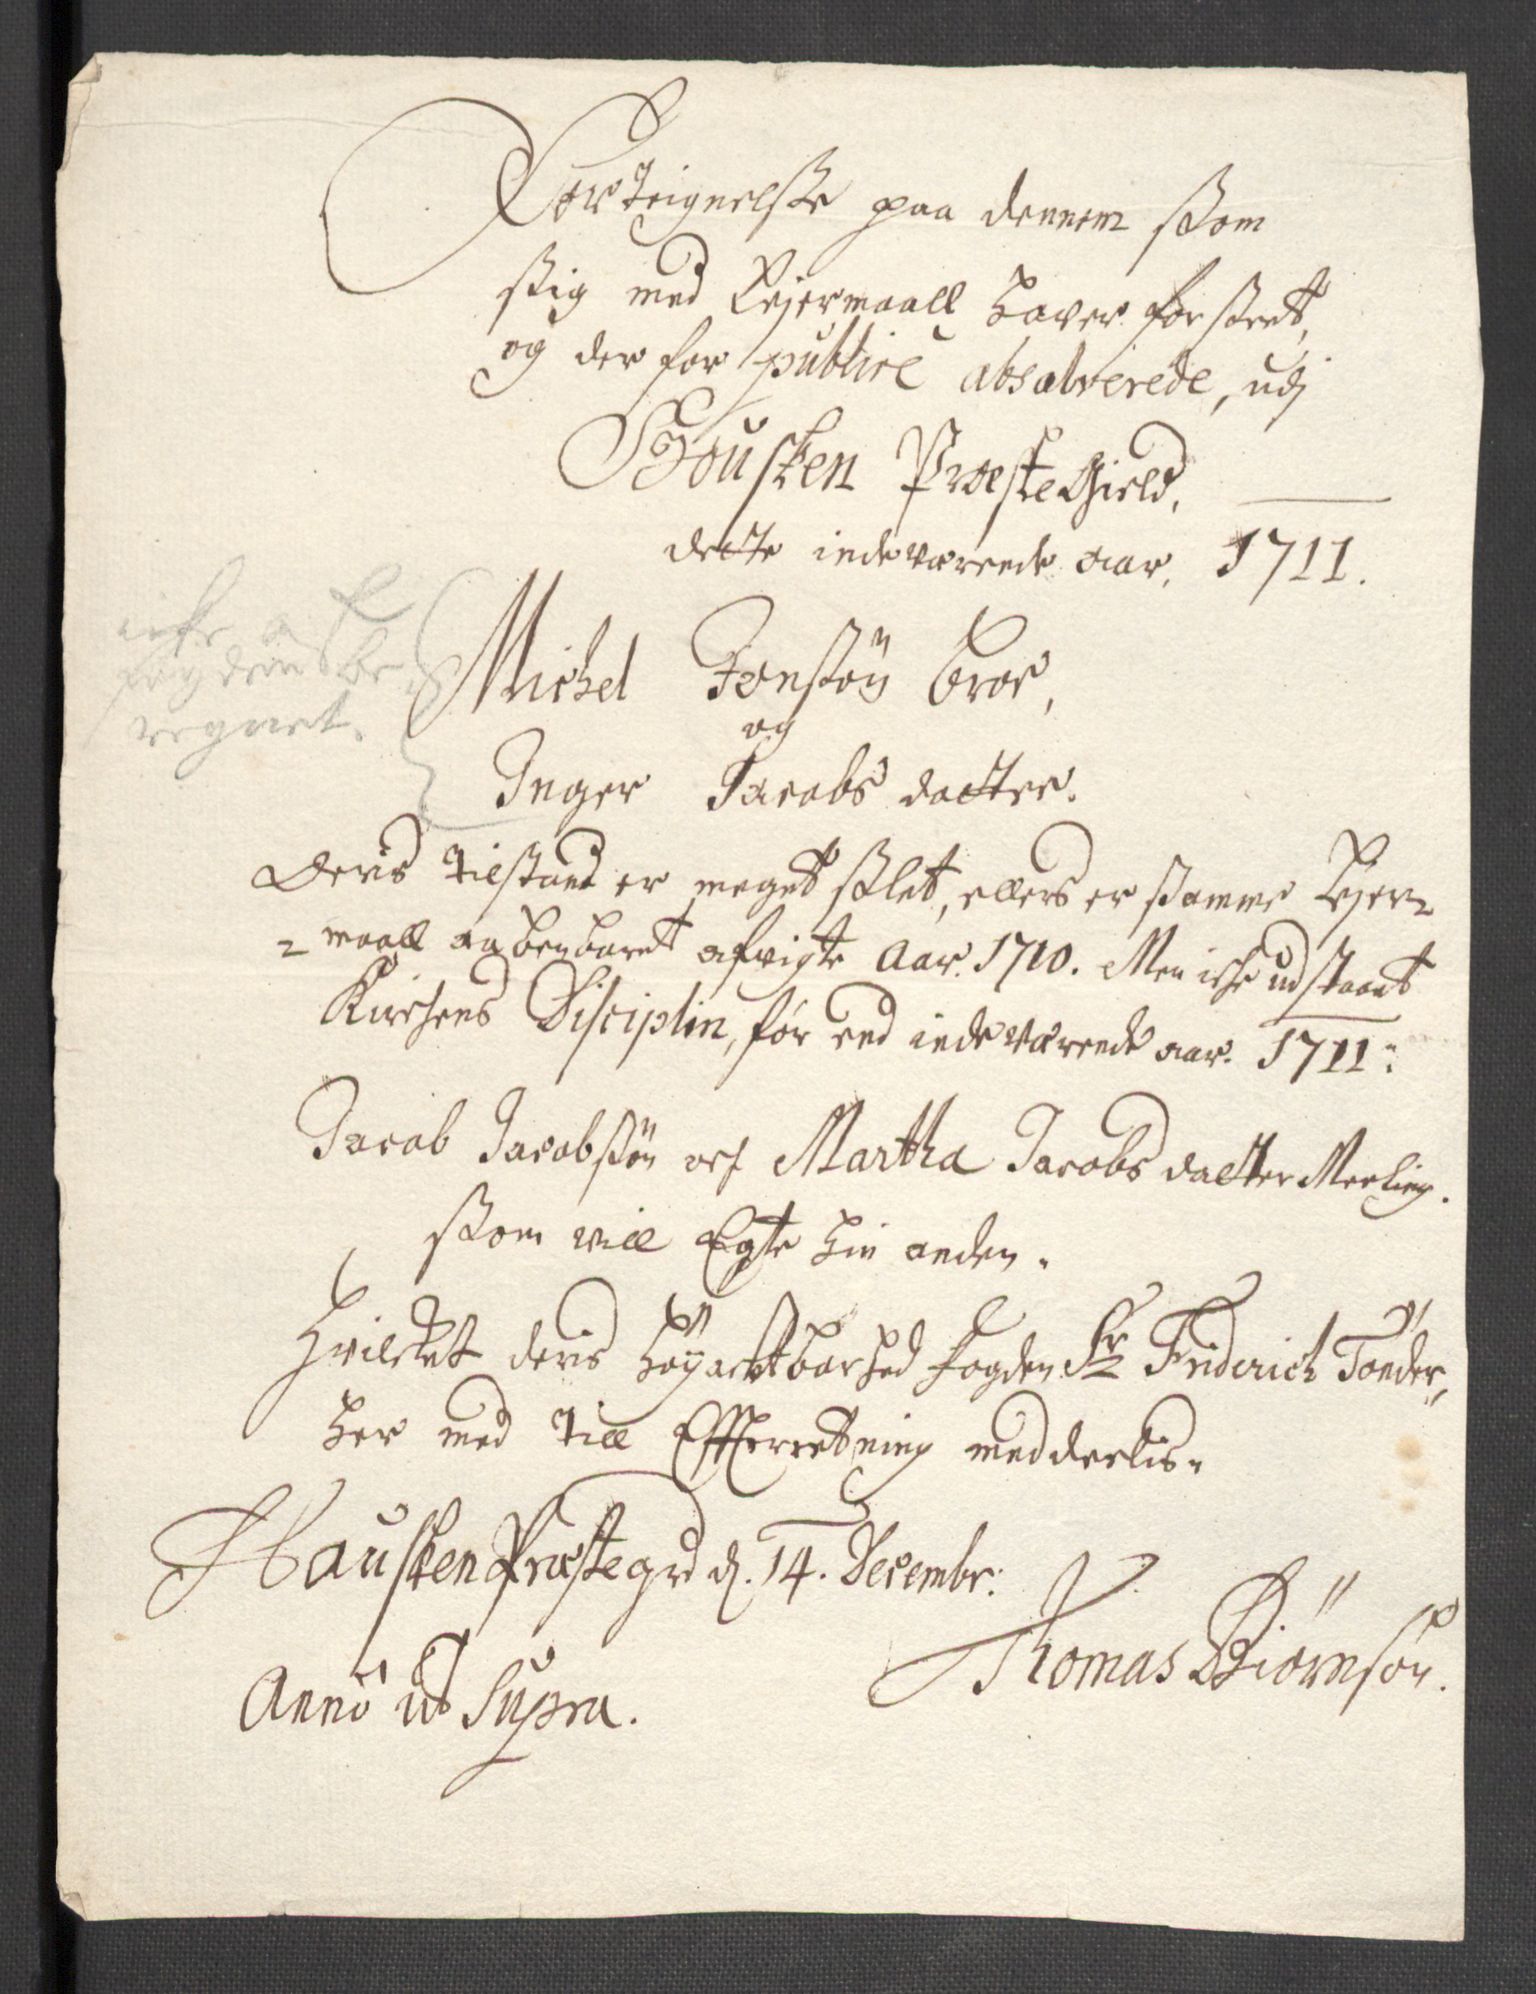 Forteignelsse paa dennem ssom
ssig med Lejermaall haver forsseet,
og der for publicè absolverede, udj
Housken Præste Gield,
dette indeværende aar, 1711.
Michel Jonssøn
og
Inger Jacobs datter.
Deris tilstand er meget sslet, ellers er ssamme Lejer-
-maall aabenbaret afvigte Aar. 1710. Men iche udstaaet
Kirchens Disciplin, før end indeværende aar. 1711:
Jacob Jacobssøn oc Martha Jacobs datter
ssom vill Egte hin anden.
Hvilcket deris Høyachtbarhed Fogden Sr Friderich Tönder,
her med till Effterretning meddeelis.
Hausken Præstegrd d. 14. Decembr:
Anno ut Supra.
Thomas Biörnsön.
regnet.